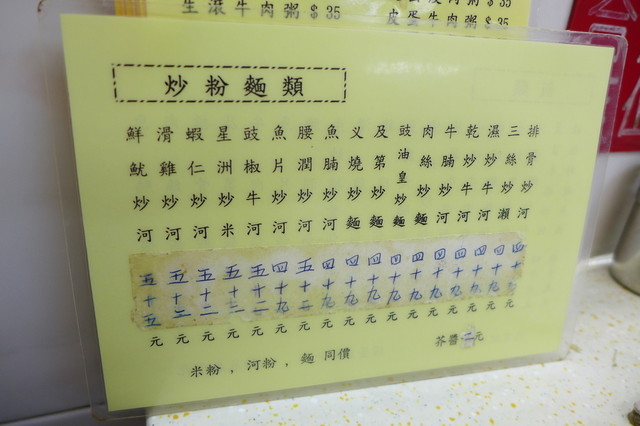 生滾牛肉粥 $35
皮蛋牛肉粥 $35
炒粉麵類
排骨炒河 四十九元
三絲炒瀨 四十九元
濕炒牛河 四十九元
乾炒牛河 四十九元
牛腩炒河 四十九元
肉絲炒麵 四十九元
豉油皇炒麵 四十九元
及第炒麵 四十九元
义燒炒麵 四十九元
魚腩炒河 四十九元
腰潤炒河 五十二元
魚片炒河 四十九元
豉椒牛河 五十二元
星洲炒米 五十二元
蝦仁炒河 五十二元
滑雞炒河 五十二元
鮮魷炒河 五十五元
米粉，河粉，麵 同價
芥醬二元